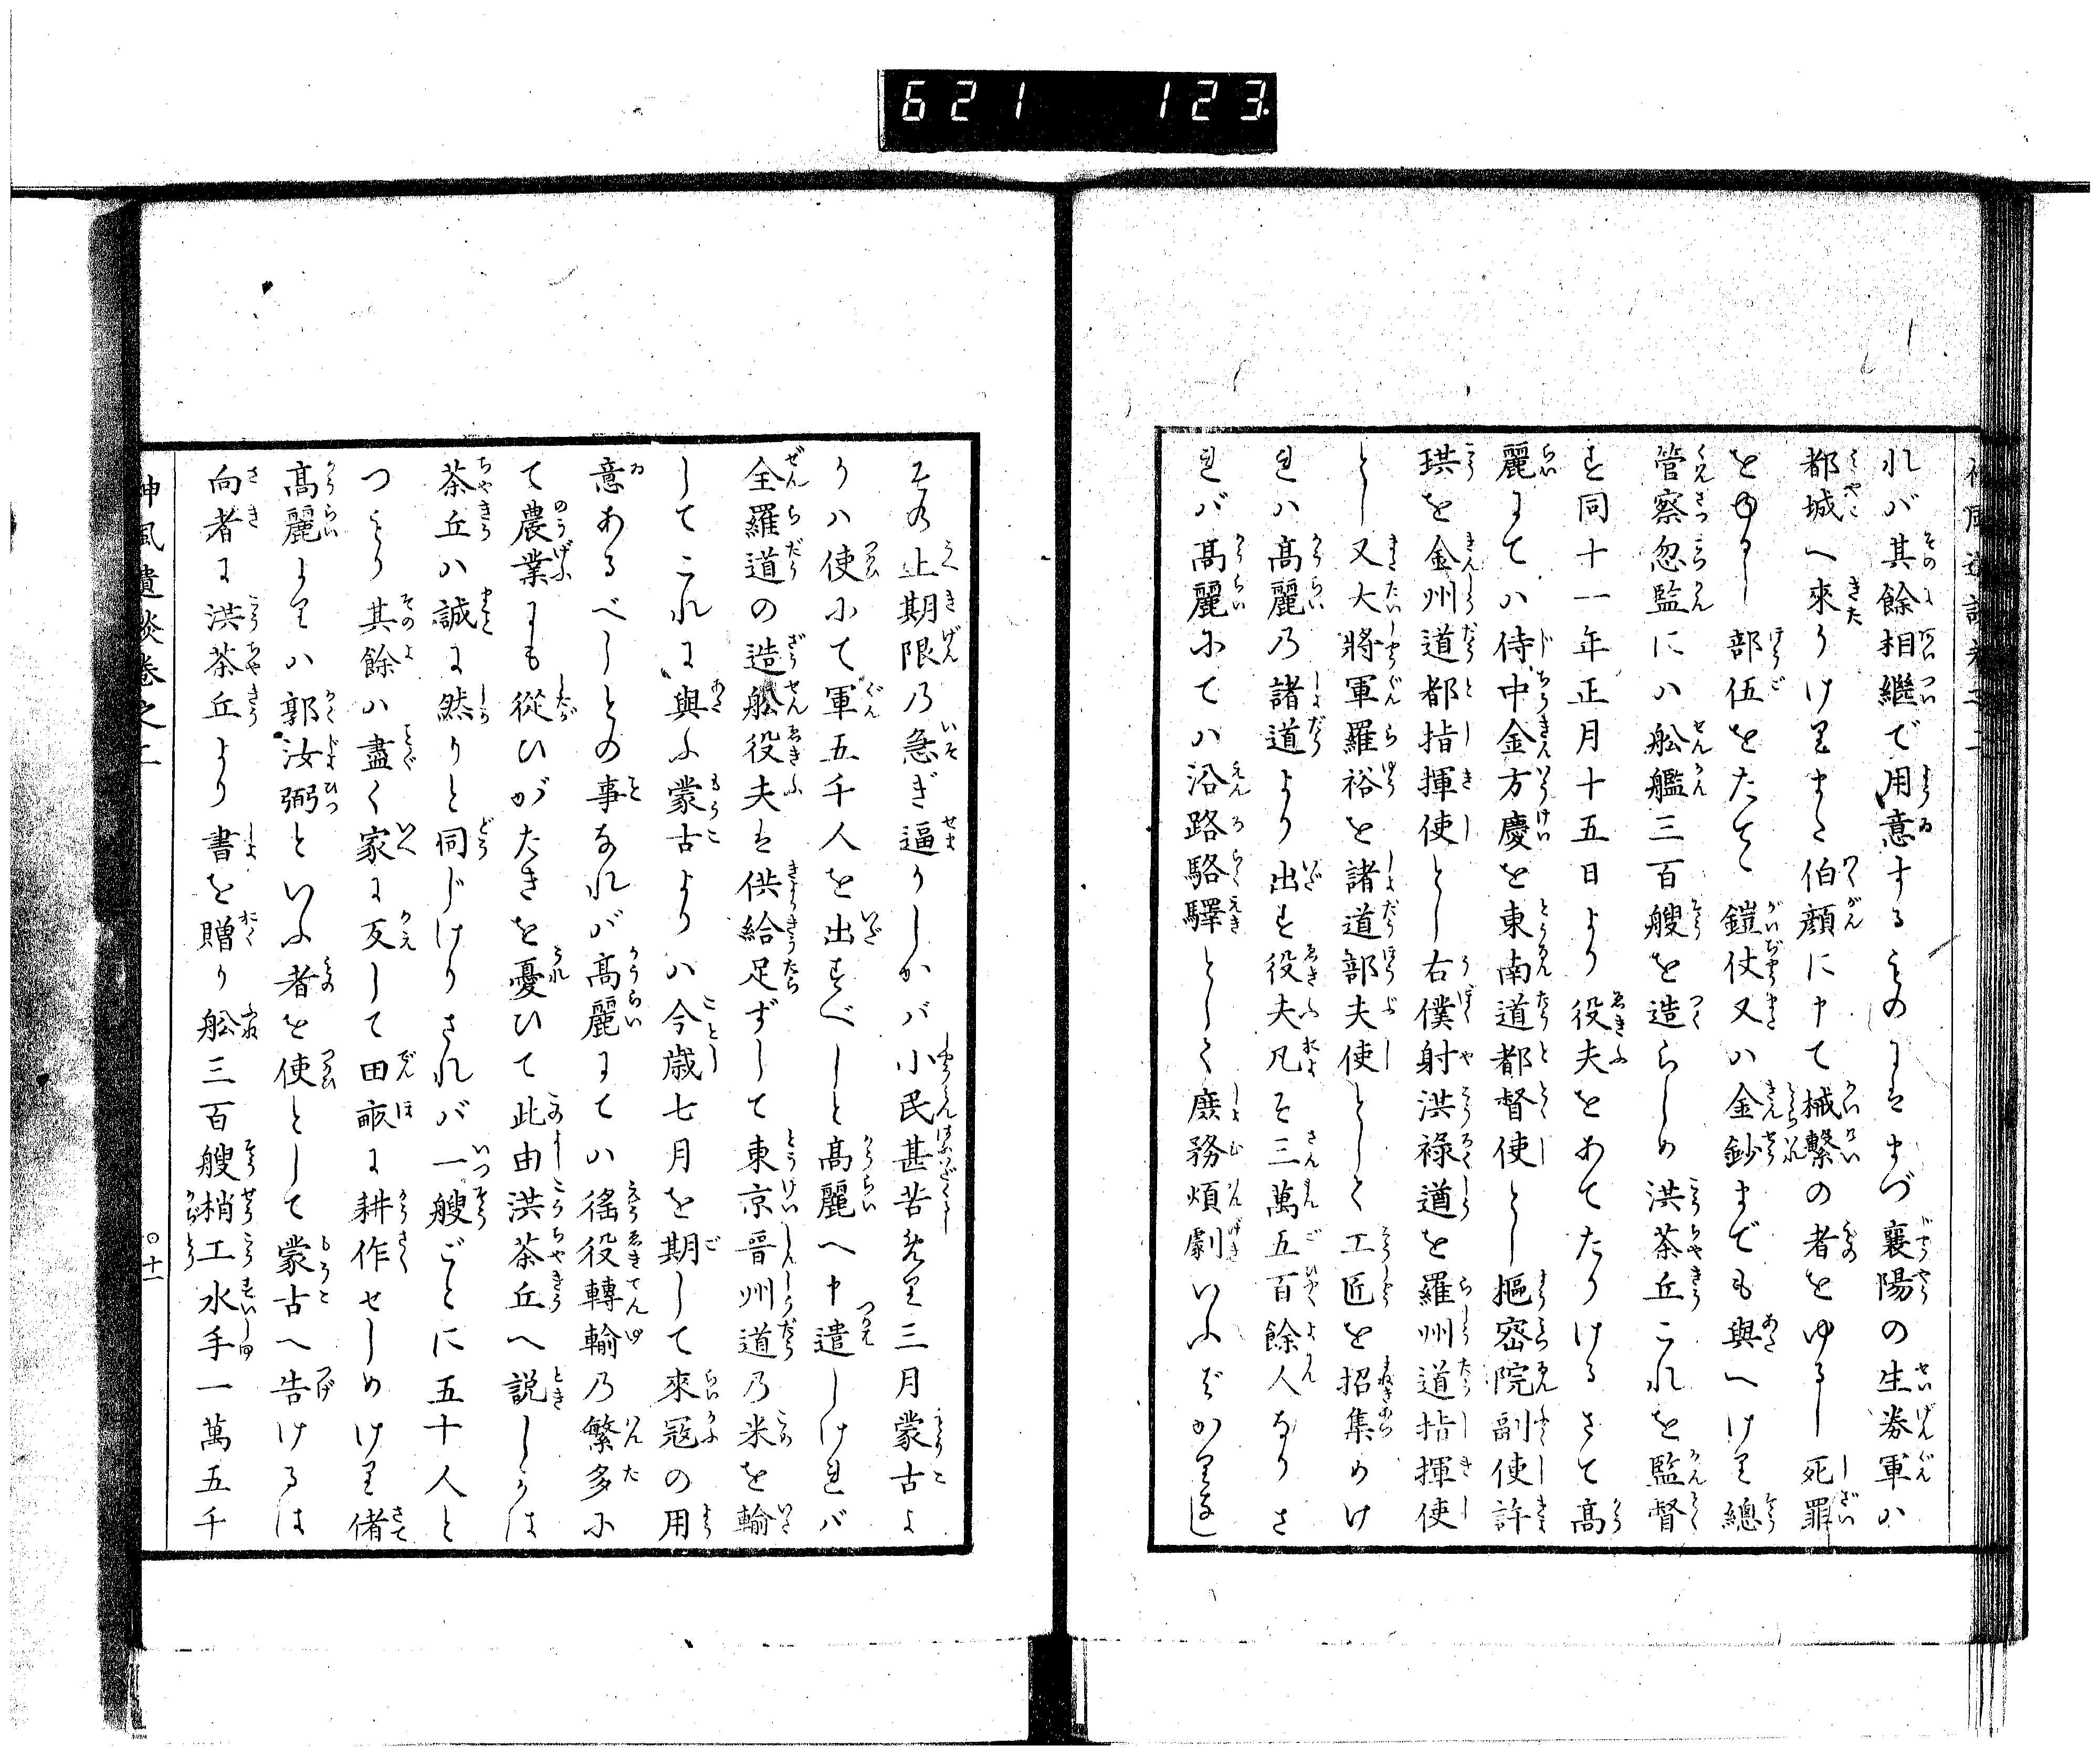 621 123.
れバ其餘相繼で用意するものにはまづ襄陽の生券軍ハ
都城へ來りけりまた伯顔に申て械繫の者をゆるし死罪
をゆるし部伍をたてて鎧仗又ハ金鈔までも與へけり總
管察忽監にハ舩艦三百艘を造らしめ洪茶丘これを監督
す同十一年正月十五日より役夫をあてたりけるさて髙
麗にてハ侍中金方慶を東南道都督使とし樞密院副使許
珙を金州道都指揮使とし右僕射洪祿遒を羅州道指揮使
とし又大將軍羅裕を諸道部夫使として工匠を招集めけ
れハ髙麗乃諸道より出す役夫凡そ三萬五百餘人なりさ
れバ髙麗にてハ沿路駱驛として庶務煩劇いふばかりなし
その上期限乃急ぎ逼りしかバ小民甚苦めり三月蒙古よ
りハ使にて軍五千人を出すべしと髙麗へ申遣しけれバ
全羅道の造舩役夫は供給足ずして東京晉州道乃米を輸
してこれに與ふ蒙古よりハ今歳七月を期して來冦の用
意あるべしとの事なれバ髙麗にてハ徭役轉輸乃繁多に
て農業にも從ひがたきを憂ひて此由洪茶丘へ説しかは
茶丘ハ誠に然りと同じけりされバ一艘ごとに五十人と
つもり其餘ハ盡く家に反して田畝に耕作せしめけり偖
髙麗よりハ郭汝弼といふ者を使として蒙古へ告けるは
向者に洪茶丘より書を贈り舩三百艘梢工水手一萬五千
神風遺談卷之二
〇十一